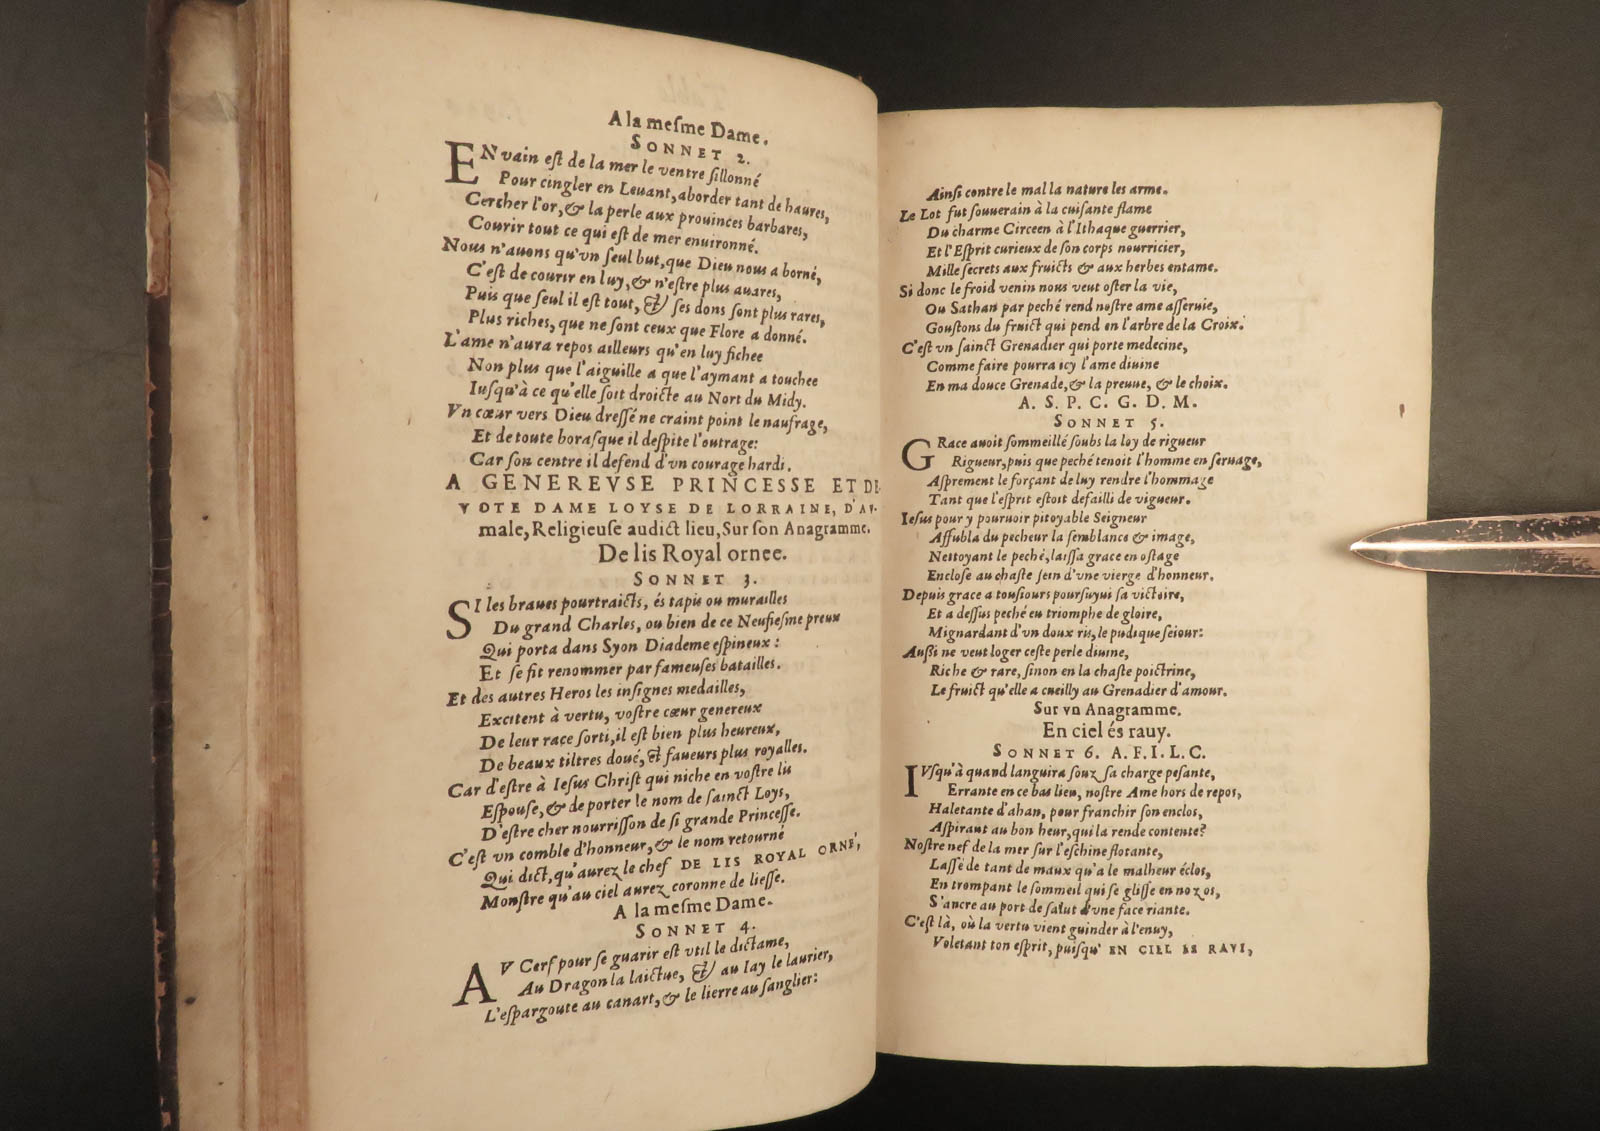 A la meſme Dame.
SONNET 2.
EN vain eſt de la mer le ventre ſillonné
Pour cingler en Leuant, aborder tant de haures,
Cercher l'or, & la perle aux prouinces barbares,
Courir tout ce qui eſt de mer enuironné.
Nous n'auons qu'vn ſeul but, que Dieu nous a borné,
C'eſt de courir en luy, & n'eſtre plus auares,
Puis que ſeul il eſt tout, & ſes dons ſont plus rares,
Plus riches, que ne ſont ceux que Flore a donné.
L'ame n'aura repos ailleurs qu'en luy fichee
Non plus que l'aiguille a que l'aymant a touchee
Iuſqu'à ce qu'elle ſoit droicte au Nort du Midy.
Vn cœur vers Dieu dreſſé ne craint point le naufrage,
Et de toute boraſque il deſpite l'outrage:
Car ſon centre il defend d'vn courage hardi.
A GENEREVSE PRINCESSE ET DE
VOTE DAME LOYSE DE LORRAINE, D'AV-
male, Religieuſe audict lieu, Sur ſon Anagramme.
De lis Royal ornee.
SONNET 3.
SI les braues pourtraicts, és tapis ou murailles
Du grand Charles, ou bien de ce Neufieſme preux
Qui porta dans Syon Diademe eſpineux :
Et ſe fit renommer par fameuſes batailles.
Et des autres Heros les inſignes medailles,
Excitent à vertu, voſtre cœur genereux
De leur race ſorti, il eſt bien plus heureux,
De beaux tiltres doué, & faueurs plus royalles.
Car d'eſtre à Ieſus Chriſt qui niche en voſtre lis
Eſpouſe, & de porter le nom de ſainct Loys,
D'eſtre cher nourriſſon de ſi grande Princeſſe.
C'eſt vn comble d'honneur, & le nom retourné
Qui dict, qu'aurez le chef DE LIS ROYAL ORNÉ,
Monſtre qu'au ciel aurez coronne de lieſſe.
A la meſme Dame.
SONNET 4.
AV Cerf pour ſe guarir eſt vtil le dictame,
Au Dragon la laictue, & au Iay le laurier,
L'eſpargoute au canart, & le lierre au ſanglier:
Ainſi contre le mal la nature les arme.
Le Lot fut ſouuerain à la cuiſante flame
Du charme Circeen à l'Ithaque guerrier,
Et l'Eſprit curieux de ſon corps nourricier,
Mille ſecrets aux fruicts & aux herbes entame.
Si donc le froid venin nous veut oſter la vie,
Ou Sathan par peché rend noſtre ame aſſeruie,
Gouſtons du fruict qui pend en l'arbre de la Croix.
C'eſt vn ſainct Grenadier qui porte medecine,
Comme faire pourra icy l'ame diuine
En ma douce Grenade, & la preuue, & le choix.
A. S. P. C. G. D. M.
SONNET 5.
GRace auoit ſommeillé ſoubs la loy de rigueur
Rigueur, puis que peché tenoit l'homme en ſeruage,
Aſprement le forçant de luy rendre l'hommage
Tant que l'eſprit eſtoit defailli de vigueur.
Ieſus pour y pouruoir pitoyable Seigneur
Affubla du pecheur la ſemblance & image,
Nettoyant le peché, laiſſa grace en oſtage
Encloſe au chaſte ſein d'vne vierge d'honneur.
Depuis grace a touſiours pourſuyui ſa victoire,
Et a deſſus peché eu triomphe de gloire,
Mignardant d'vn doux ris, le pudique ſeiour:
Auſsi ne veut loger ceſte perle diuine,
Riche & rare, ſinon en la chaſte poictrine,
Le fruict qu'elle a cueilly au Grenadier d'amour.
Sur vn Anagramme.
En ciel és rauy.
SONNET 6. A. F. I. L. C.
IVſqu'à quand languira ſouz ſa charge peſante,
Errante en ce bas lieu, noſtre Ame hors de repos,
Haletante d'ahan, pour franchir ſon enclos,
Aſpirant au bon heur, qui la rende contente?
Noſtre nef de la mer ſur l'eſchine flotante,
Laſſe de tant de maux qu'a le malheur éclos,
En trompant le ſommeil qui ſe gliſſe en noz os,
S'ancre au port de ſalut d'vne face riante.
C'eſt là, où la vertu vient guinder à l'enuy,
Voletant ton eſprit, puiſqu' EN CIEL ES RAVI,